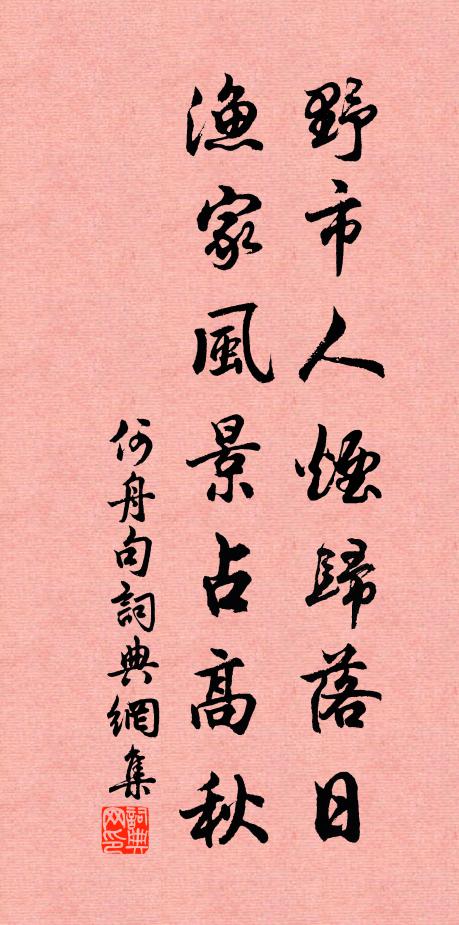 野市人煙歸落日
漁家風景占高秋
何舟句詞典網集
詞典网印